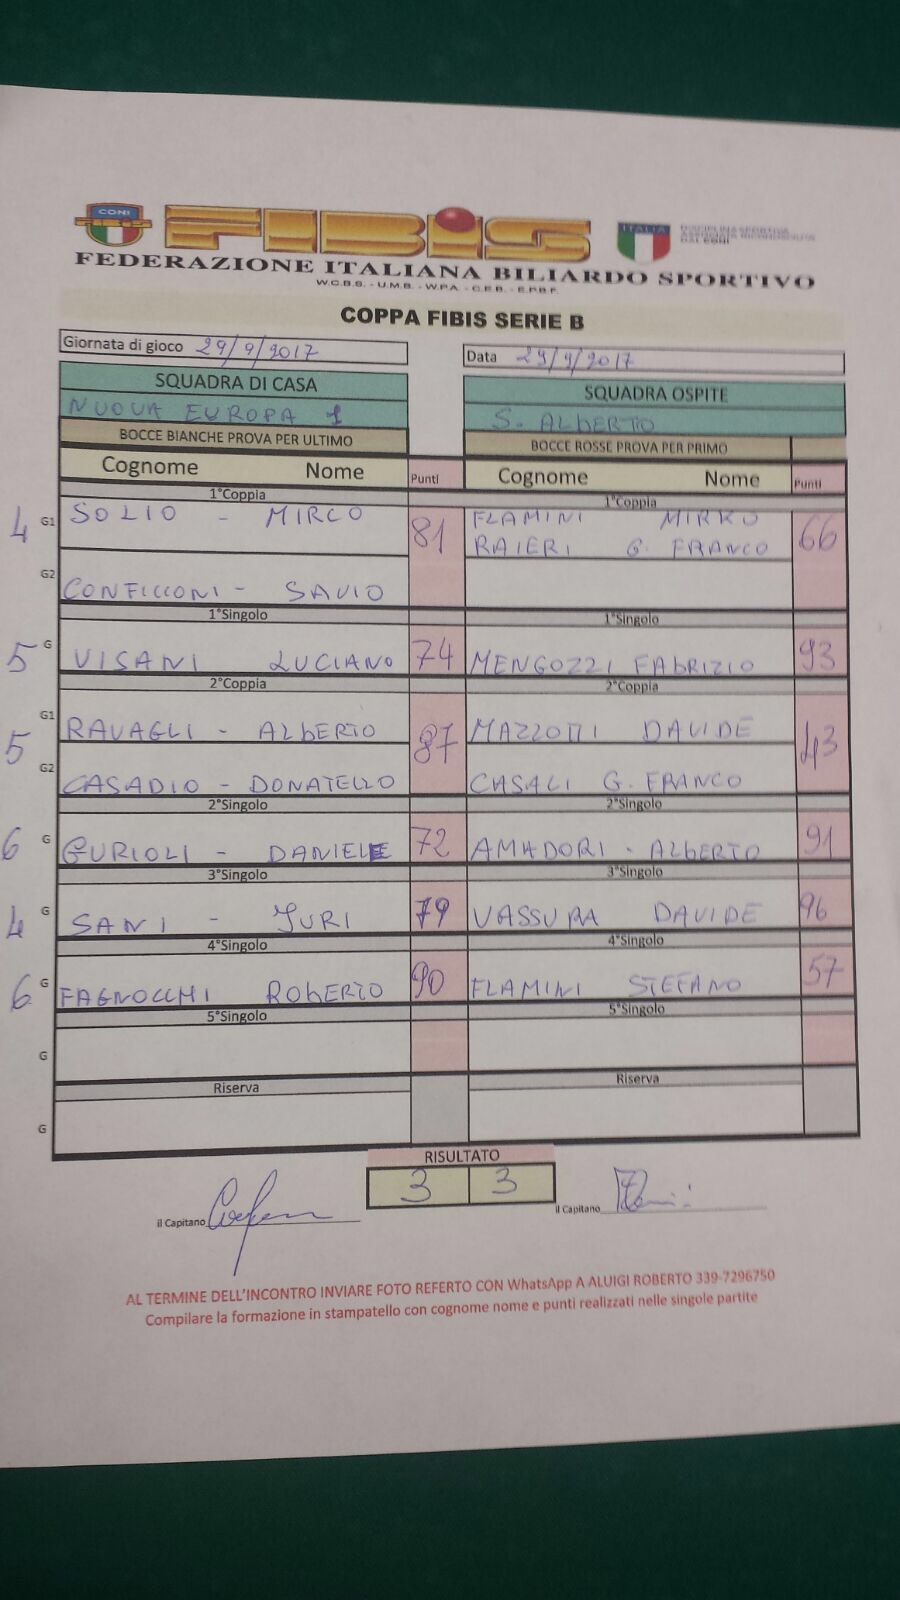 CONI
FIBIS
ITALIA
FEDERAZIONE ITALIANA BILIARDO SPORTIVO
W.C.B.S. - U.M.B. - W.P.A. - C.E.B. - E.P.B.F.
COPPA FIBIS SERIE B
Giornata di gioco 29/9/2017 Data 29/9/2017
SQUADRA DI CASA SQUADRA OSPITE
NUOVA EUROPA 1 S. ALBERTO
BOCCE BIANCHE PROVA PER ULTIMO BOCCE ROSSE PROVA PER PRIMO
Cognome Nome Punti Cognome Nome Punti
1°Coppia 1°Coppia
4 G1 SOLIO - MIRCO 81 FLAMINI MIRKO 66
RAIERI G. FRANCO
G2 CONFICCONI - SAVIO
1°Singolo 1°Singolo
5 G VISANI LUCIANO 74 MENGOZZI FABRIZIO 93
2°Coppia 2°Coppia
5 G1 RAVAGLI - ALBERTO 87 MAZZOTTI DAVIDE 43
G2 CASADIO - DONATELLO CASALI G. FRANCO
2°Singolo 2°Singolo
6 G GURIOLI - DANIELE 72 AMADORI - ALBERTO 91
3°Singolo 3°Singolo
4 G SANI - YURI 79 VASSURA DAVIDE 96
4°Singolo 4°Singolo
6 G FAGNOCCHI ROBERTO 90 FLAMINI STEFANO 57
5°Singolo 5°Singolo
G
Riserva Riserva
G
RISULTATO
3 3
il Capitano il Capitano
AL TERMINE DELL'INCONTRO INVIARE FOTO REFERTO CON WhatsApp A ALUIGI ROBERTO 339-7296750
Compilare la formazione in stampatello con cognome nome e punti realizzati nelle singole partite